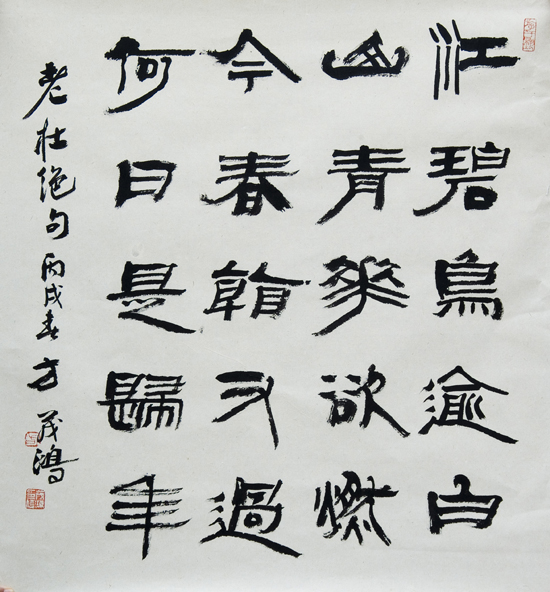 江碧鳥逾白
山青花欲燃
今春看又過
何日是歸年
老杜绝句丙戌春方茂鴻